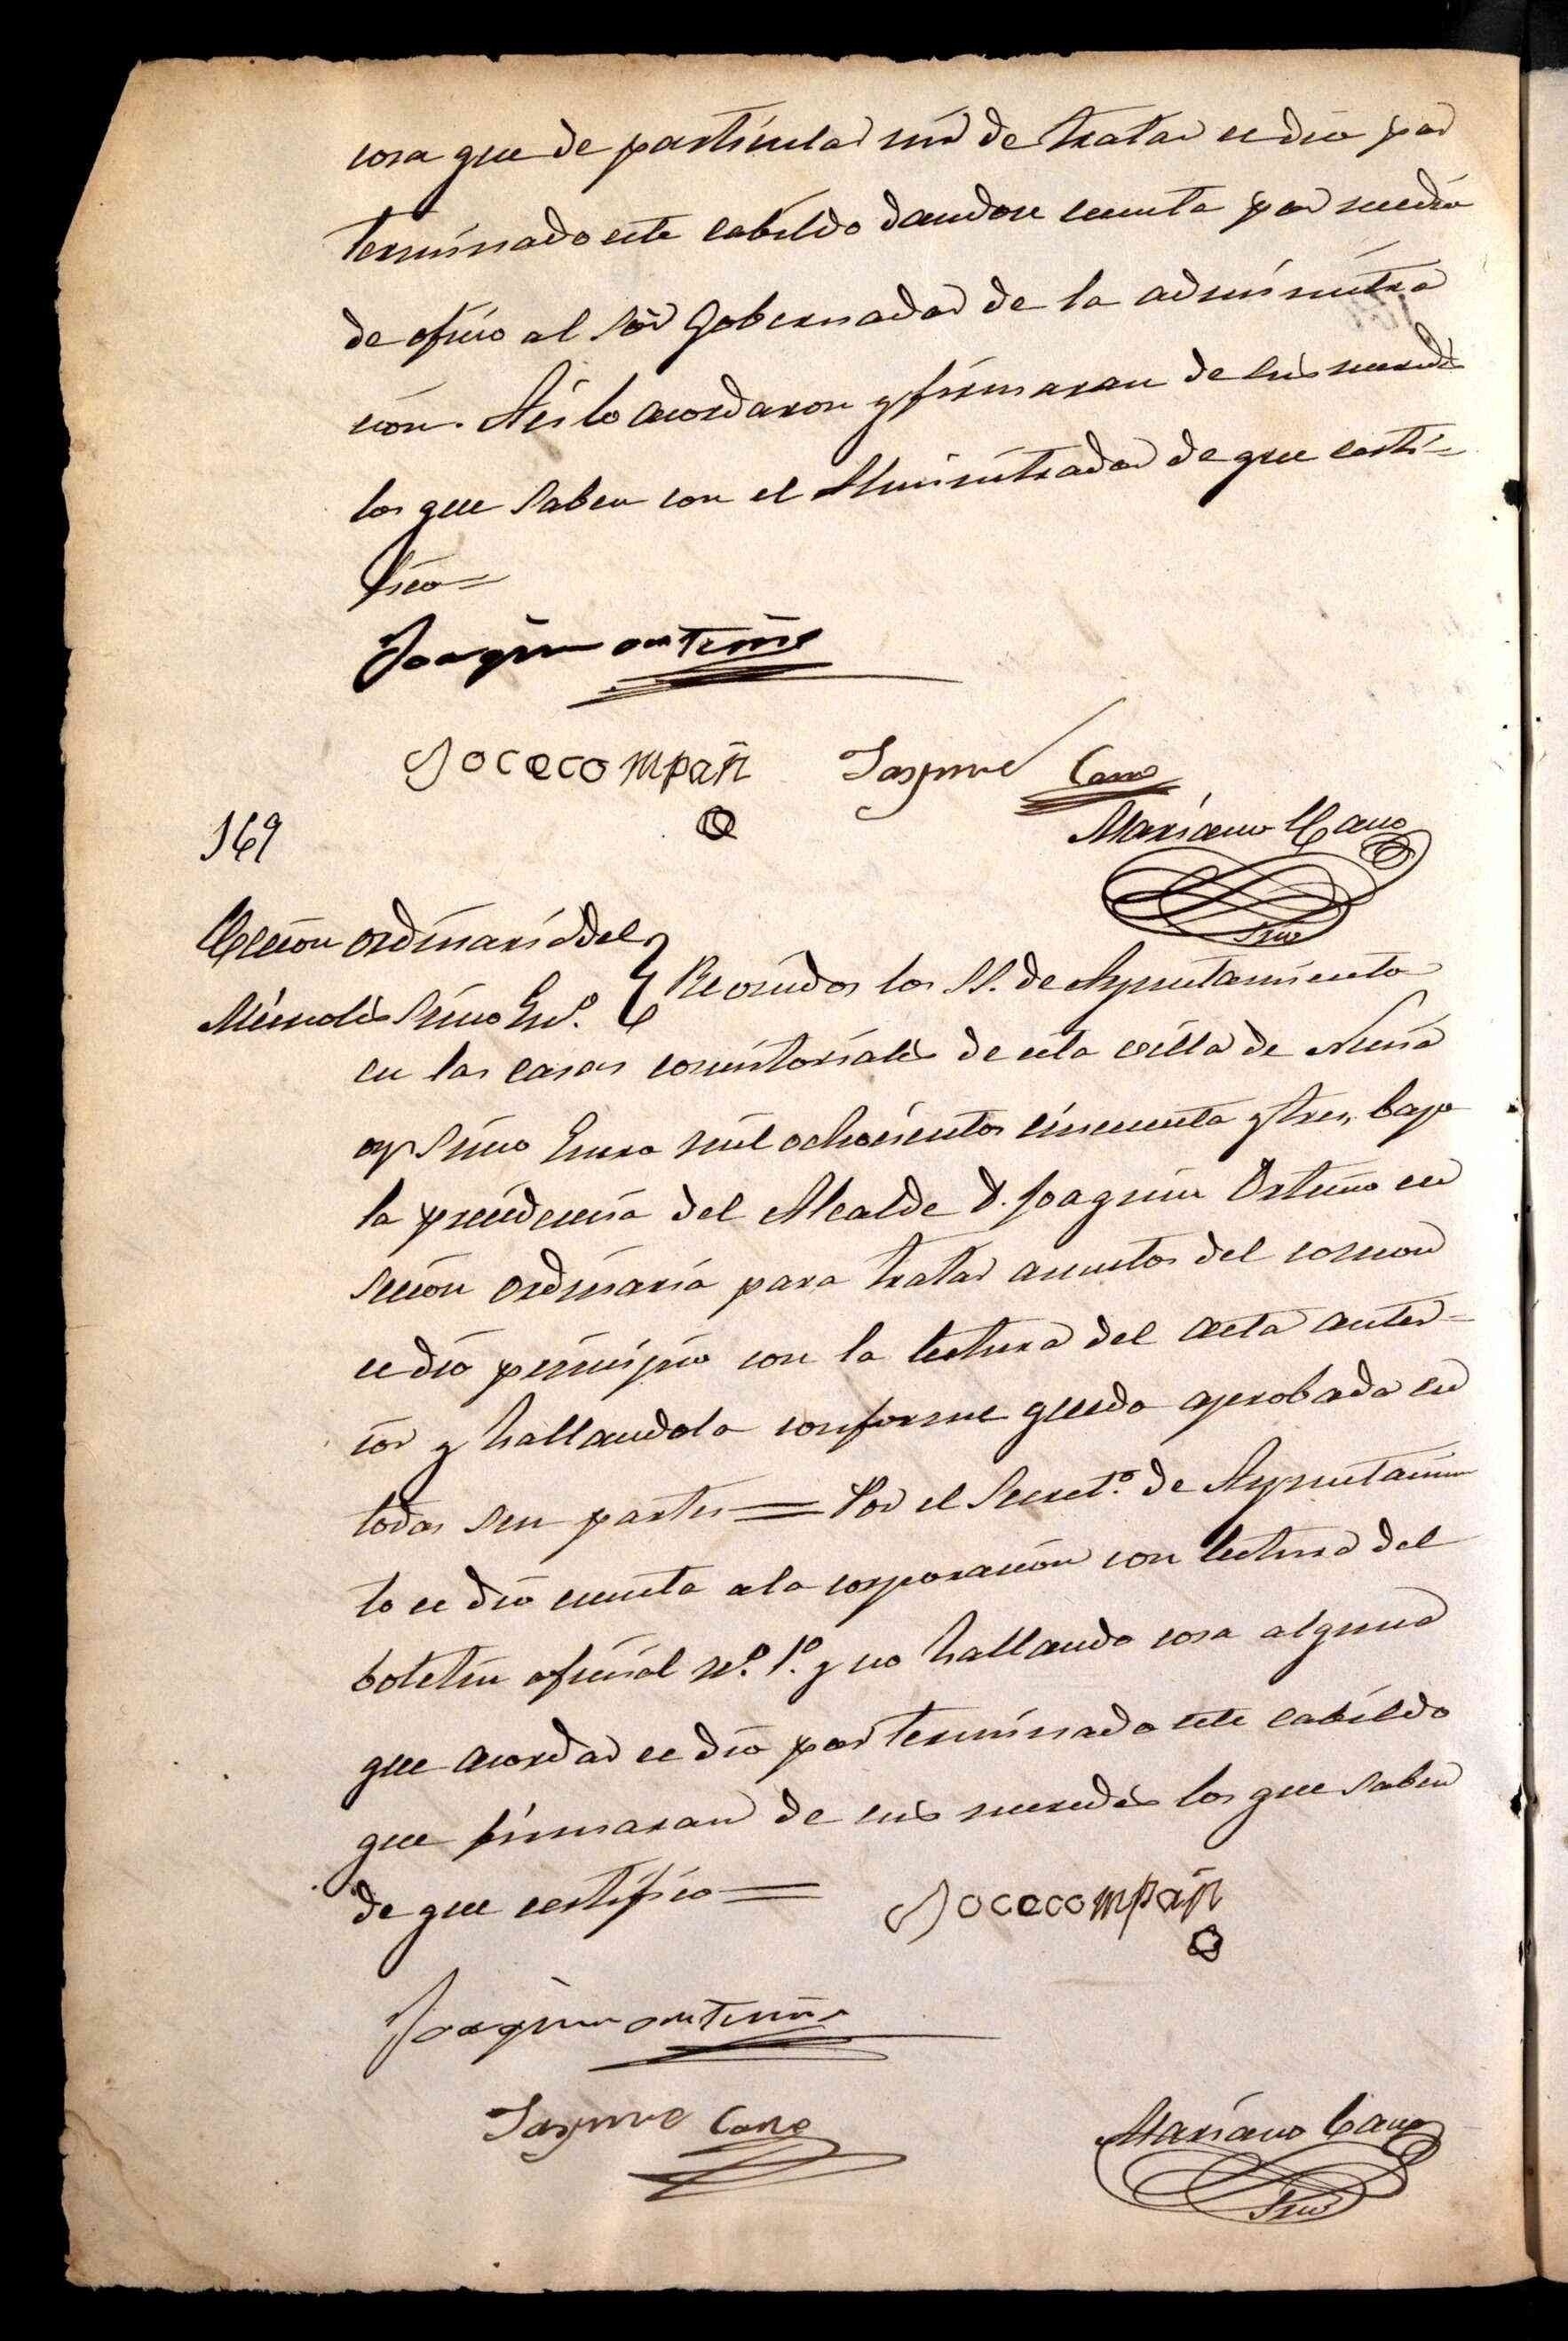 cosa que de particular sin de tratar se dio por
terminado este cabildo dandose cuenta por medio
de oficio al Sōr Gobernador de la administra
cion. Asi lo acordaron y firmaran de sus mercedes
los que saben con el de que certi=
fico=
Joaquin ortuño
Jocecompañ Jayme Cano
Mariano Cano
Srio
169
Secion ordinaria del
Miercoles Cinco En.º Reunidos los SS. de Ayuntamiento
en las casas consistoriales de esta villa de Nucia
oy Cinco Enero mil ochocientos cincuenta y tres, bajo
la presidencia del Alcalde D. Joaquin Ortuño en
secion ordinaria para tratar asuntos del comun
se dio principio con la lectura del acta anter=
ior y hallandola conforme quedo aprobada en
todas sus partes = Por el Secret.º de Ayuntamien
to se dio cuenta a la corporacion con lectura del
boletin oficial n.º 1.º y no hallando cosa alguna
que acordar se dio por terminado este cabildo
que firmaran de sus mercedes los que saben
de que certifico =
Jocecompañ
Joaquin ortuño
Jayme Cano
Mariano Cano
Srio